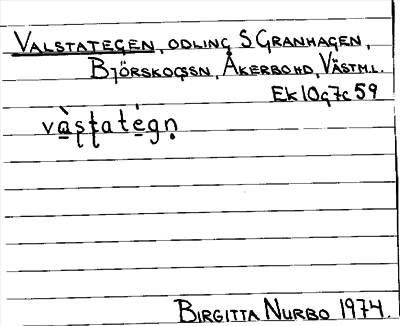 VALSTATEGEN, ODLING S GRANHAGEN,
BJÖRSKOGSSN, ÅKERBOHD, VÄSTML.
Ek 10g7c 59
và̱sţţaté̱gṇ
BIRGITTA NURBO 1974.